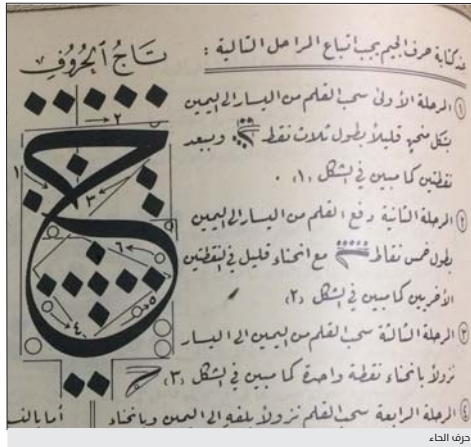 عند كتابة حرف الجيم يجب اتباع المراحل التالية :
تاجُ الحُروفِ
① المرحلة الأولى سحب القلم من اليسار إلى اليمين
بشكل منحنٍ قليلاً بطول ثلاث نقط وبعد
نقطتين كما مبين في الشكل (١) .
② المرحلة الثانية دفع القلم من اليسار إلى اليمين
بطول خمس نقاط مع انحناء قليل في النقطتين
الأخريين كما مبين في الشكل (٢)
③ المرحلة الثالثة سحب القلم من اليمين إلى اليسار
نزولاً بانحناء نقطة واحدة كما مبين في الشكل (٣)
④ المرحلة الرابعة سحب القلم نزولاً بلفه إلى اليمين وبانحناء
ح
١
٢
٣
٦
٤
٥
حرف الحاء